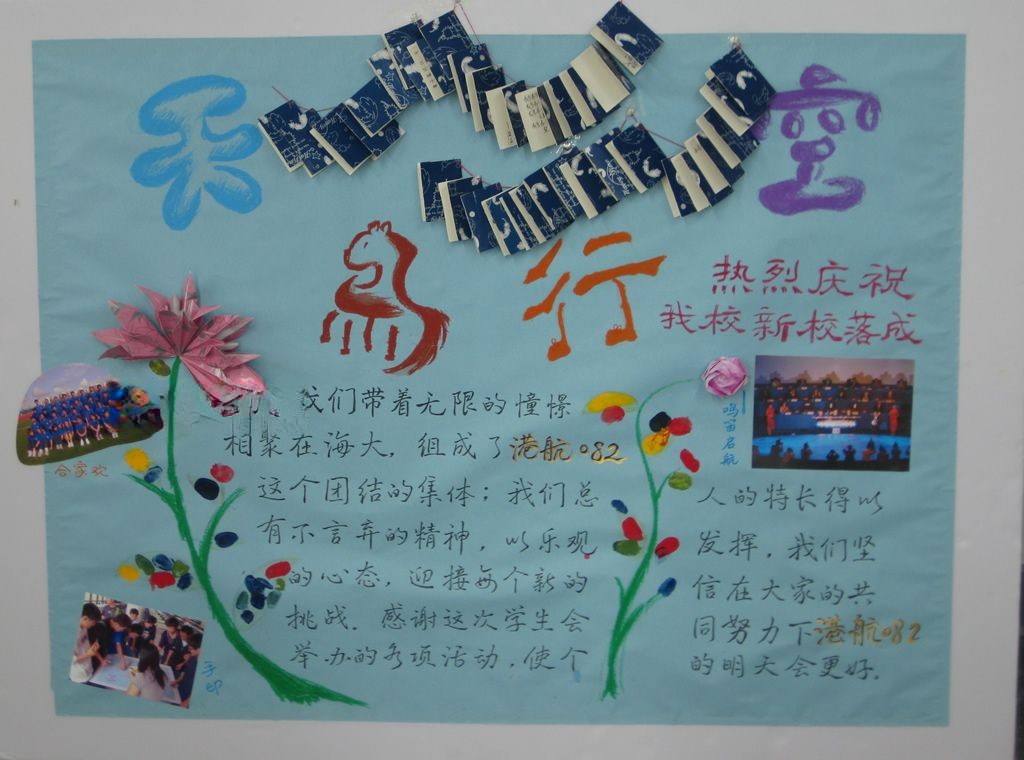 天空
行
热烈庆祝
我校新校落成
们带着无限的憧憬
相聚在海大，组成了港航082
这个团结的集体；我们总
有不言弃的精神，以乐观
的心态，迎接每个新的
挑战．感谢这次学生会
举办的各项活动，使个
人的特长得以
发挥，我们坚
信在大家的共
同努力下港航082
的明天会更好．
合家欢
手印
鸣笛启航